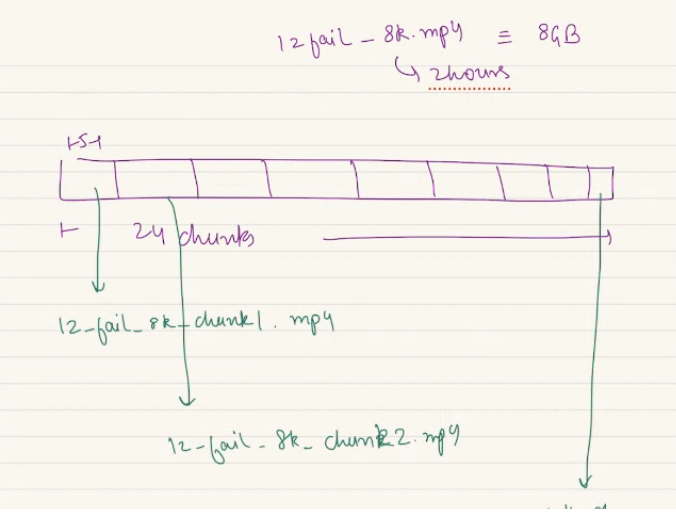 12fail - 8k.mp4 ≡ 8GB
↳ 2hours
⊢5⊣
24 chunks
12-fail-8k-chunk1.mp4
12-fail-8k-chunk2.mp4